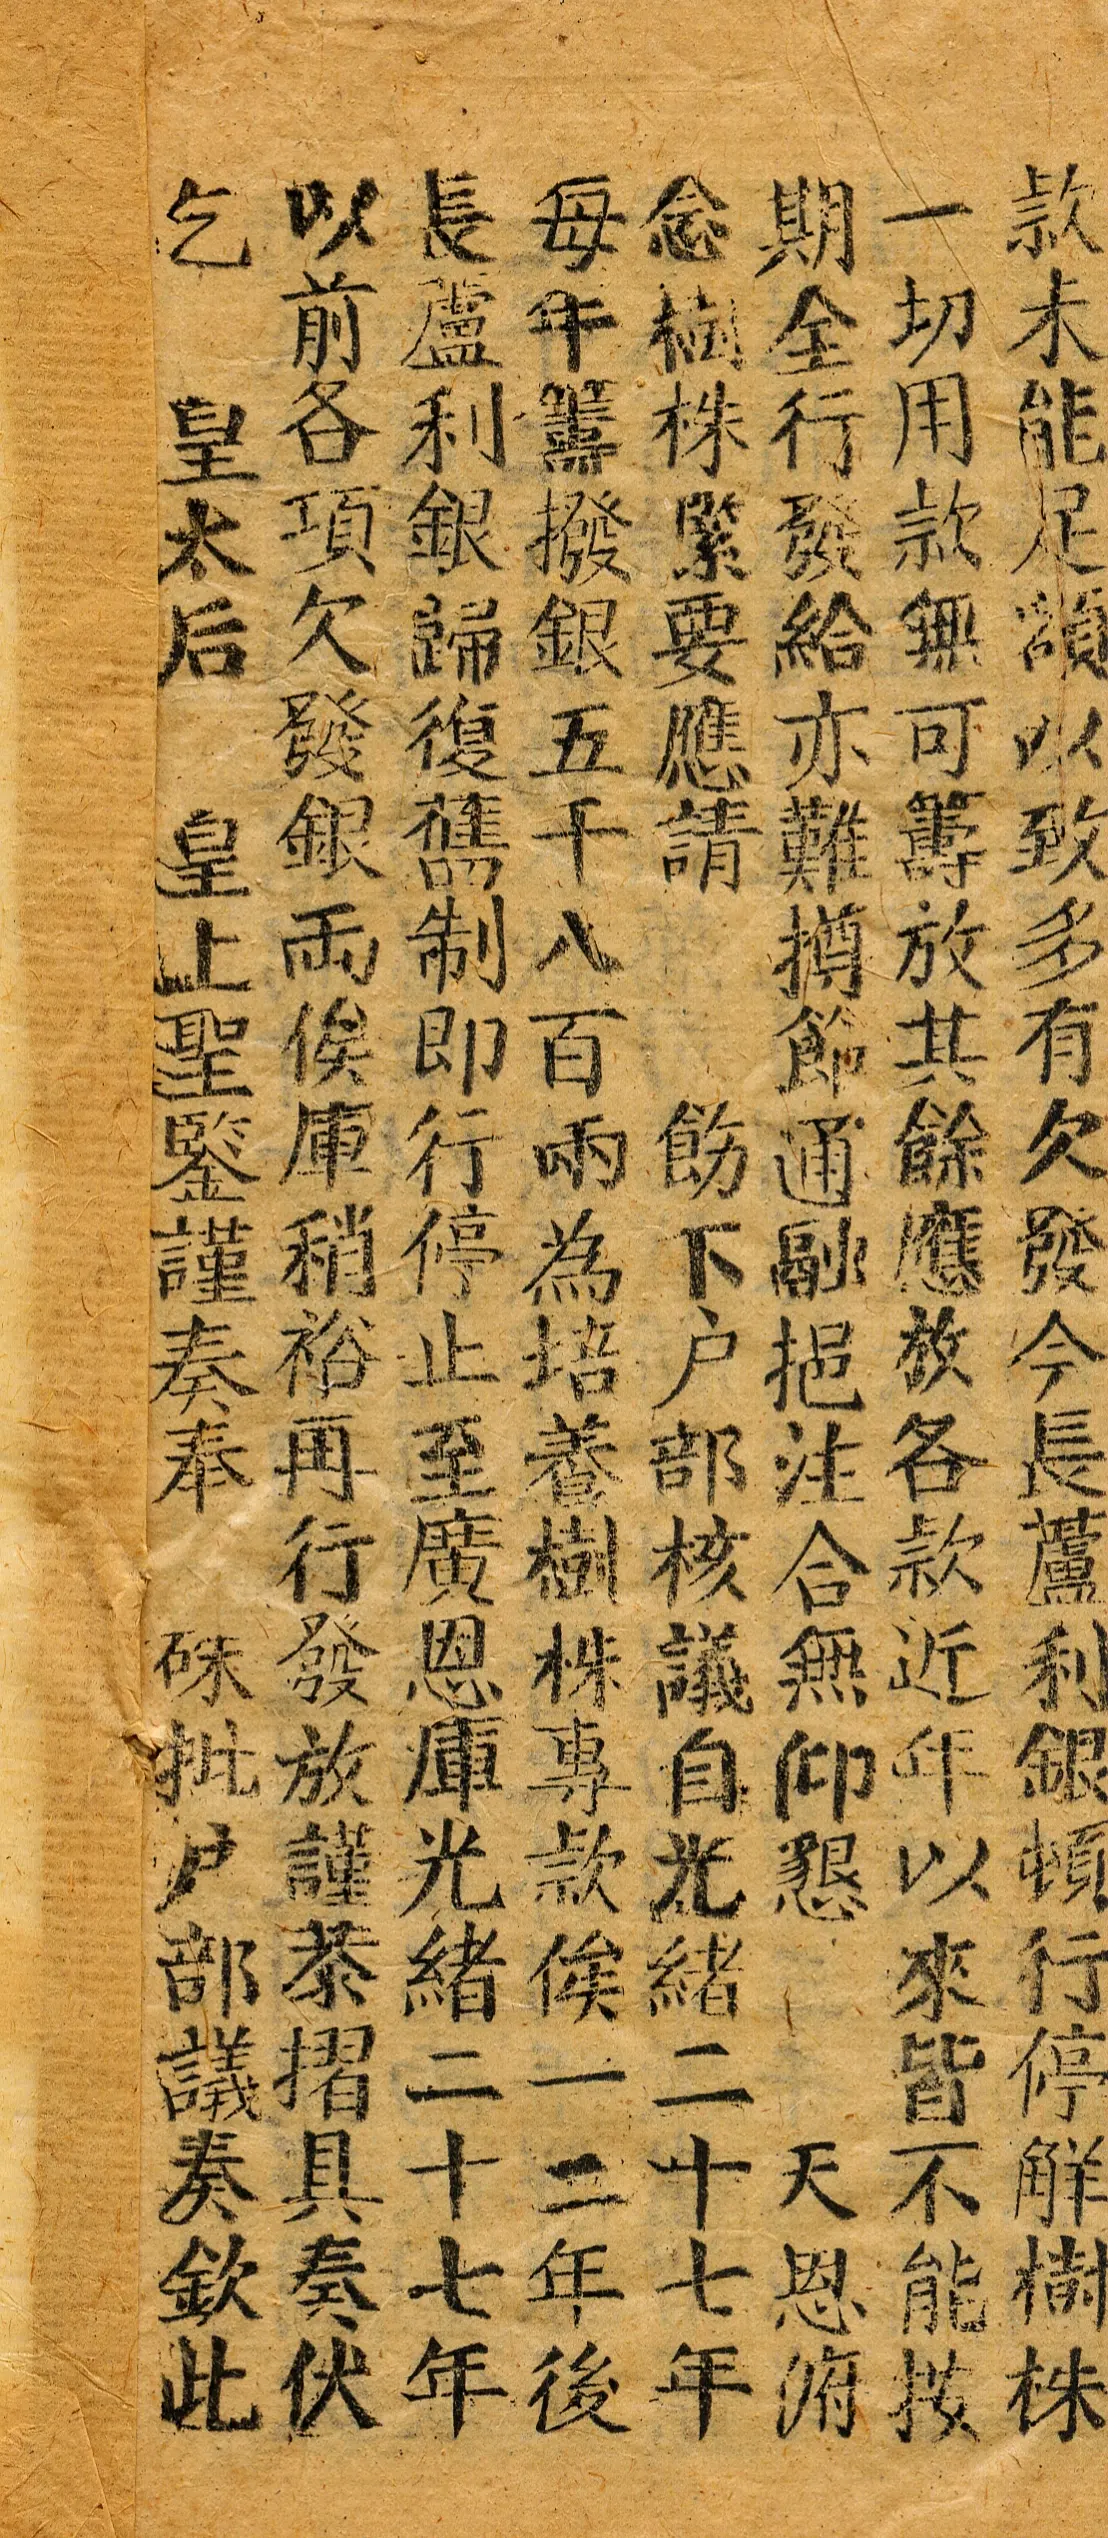 款未能足額以致多有欠發今長蘆利銀頓行停解樹株
一切用款無可籌放其餘應放各款近年以來皆不能按
期全行發給亦難撙節通融挹注合無仰懇　天恩俯
念樹株緊要應請　飭下户部核議自光緒二十七年
每年籌撥銀五千八百兩為培養樹株專款俟一二年後
長蘆利銀歸復舊制即行停止至廣恩庫光緒二十七年
以前各項欠發銀両俟庫稍裕再行發放謹恭摺具奏伏
乞　皇太后　皇上聖鑒謹奏奉　硃批户部議奏欽此